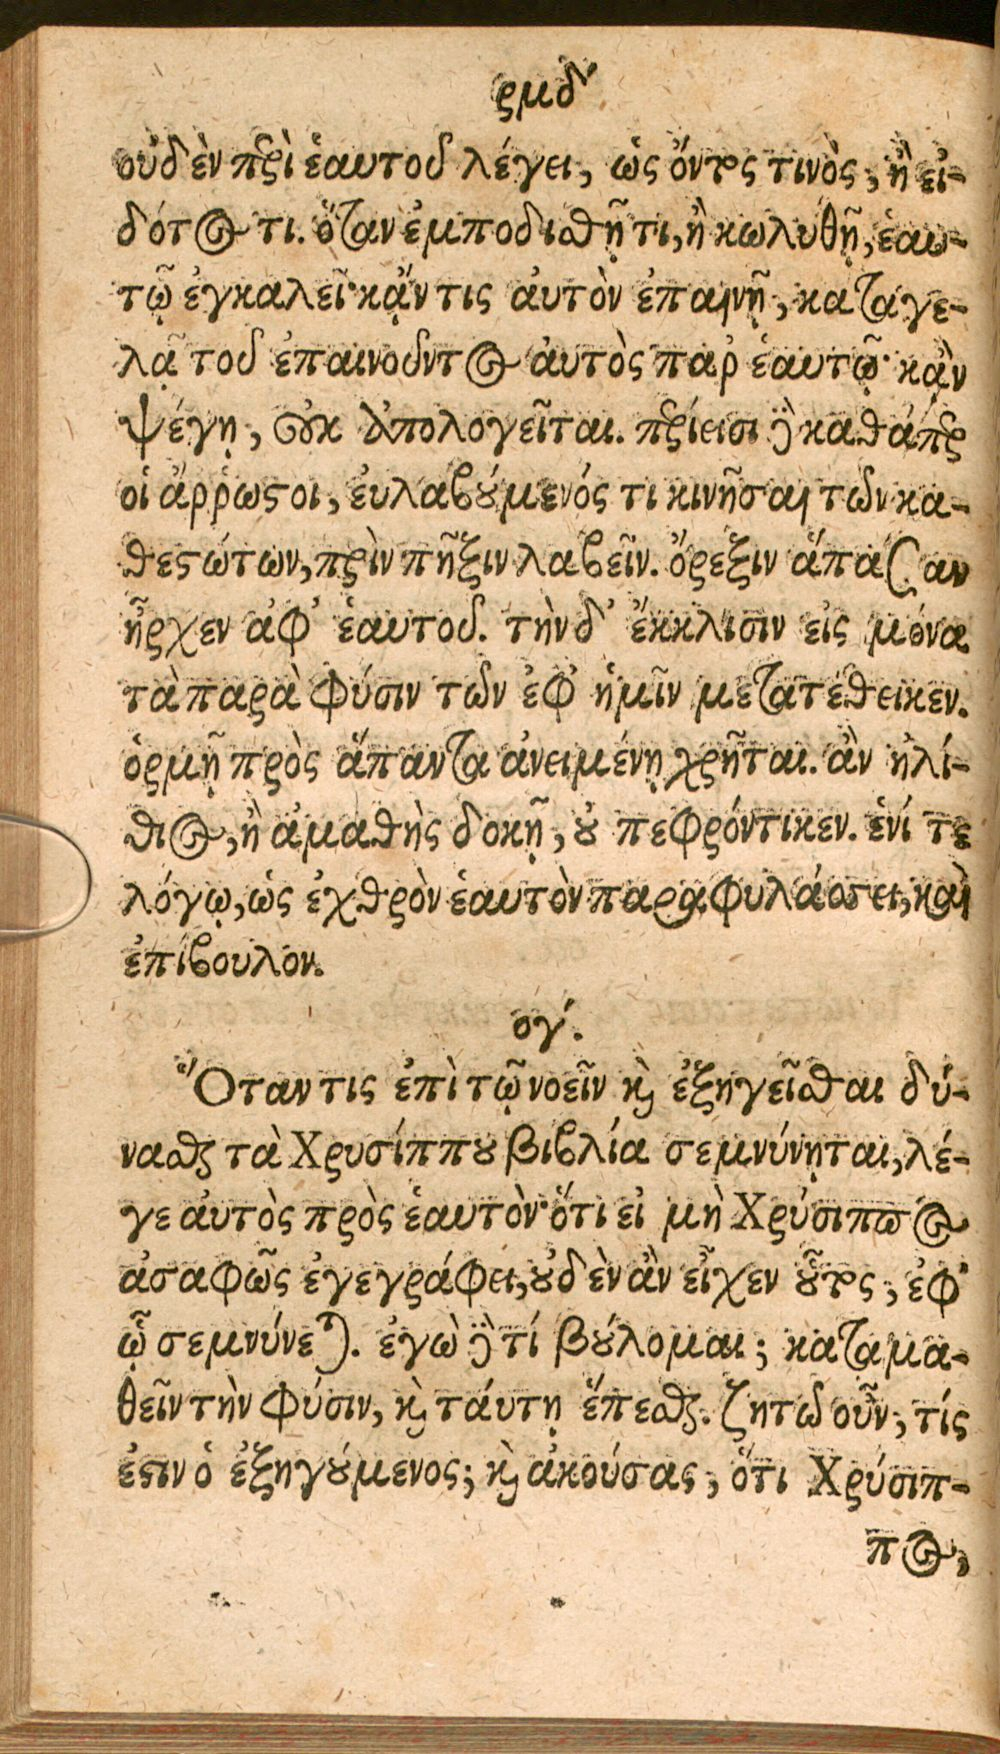 ρμδ´
οὐδὲν περὶ ἑαυτοῦ λέγει, ὡς ὄντος τινὸς, ἢ εἰ-
δότος τι. ὅταν ἐμποδισθῇ τι, ἢ κωλυθῇ, ἑαυ-
τῷ ἐγκαλεῖ· κᾄν τις ἀυτὸν ἐπαινῇ, καταγε-
λᾷ τοῦ ἐπαινοῦντος ἀυτὸς παρ ἑαυτῷ· κᾂν
ψέγῃ, οὐκ ἀπολογεῖται. περίεισι δὲ καθάπερ
οἱ ἄῤῥωστοι, ἐυλαβούμενός τι κινῆσαι τῶν κα-
θεστώτων, πρὶν πῆξιν λαβεῖν. ὄρεξιν ἅπασαν
ἦρχεν ἀφ' ἑαυτοῦ. τὴν δ' ἔκκλισιν εἰς μόνα
τὰ παρὰ φύσιν τῶν ἐφ' ἡμῖν μετατέθεικεν.
ὁρμῇ πρὸς ἅπαντα ἀνειμένῃ χρῆται. ἂν ἠλί-
θιος, ἢ ἀμαθὴς δοκῇ, οὐ πεφρόντικεν. ἑνί τε
λόγῳ, ὡς ἐχθρὸν ἑαυτὸν παραφυλάσσει, καὶ
ἐπίβουλον.
ογ´.
Ὅταν τις ἐπὶ τῷ νοεῖν καὶ ἐξηγεῖσθαι δύ-
νασθαι τὰ Χρυσίππου βιβλία σεμνύνηται, λέ-
γε ἀυτὸς πρὸς ἑαυτὸν· ὅτι εἰ μὴ Χρύσιππος
ἀσαφῶς ἐγεγράφει, οὐδὲν ἂν εἶχεν οὗτος, ἐφ'
ᾧ σεμνύνεται. ἐγὼ δὲ τί βούλομαι; καταμα-
θεῖν τὴν φύσιν, καὶ τάυτῃ ἕπεσθαι. ζητῶ οὖν, τίς
ἐστιν ὁ ἐξηγούμενος; καὶ ἀκούσας, ὅτι Χρύσιπ-
πος,